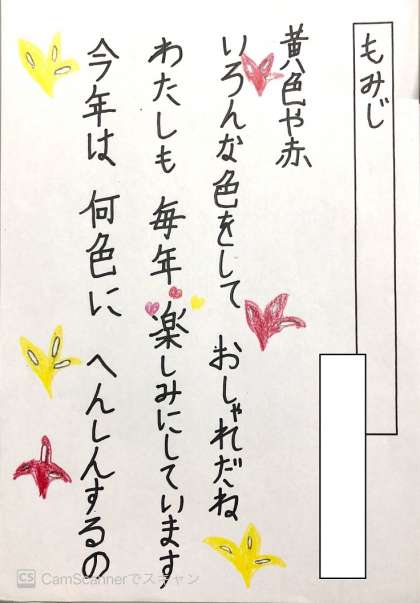 もみじ
黄色や赤
いろんな色をして おしゃれだね
わたしも 毎年 楽しみにしています
今年は 何色に へんしんするの
CS CamScannerでスキャン